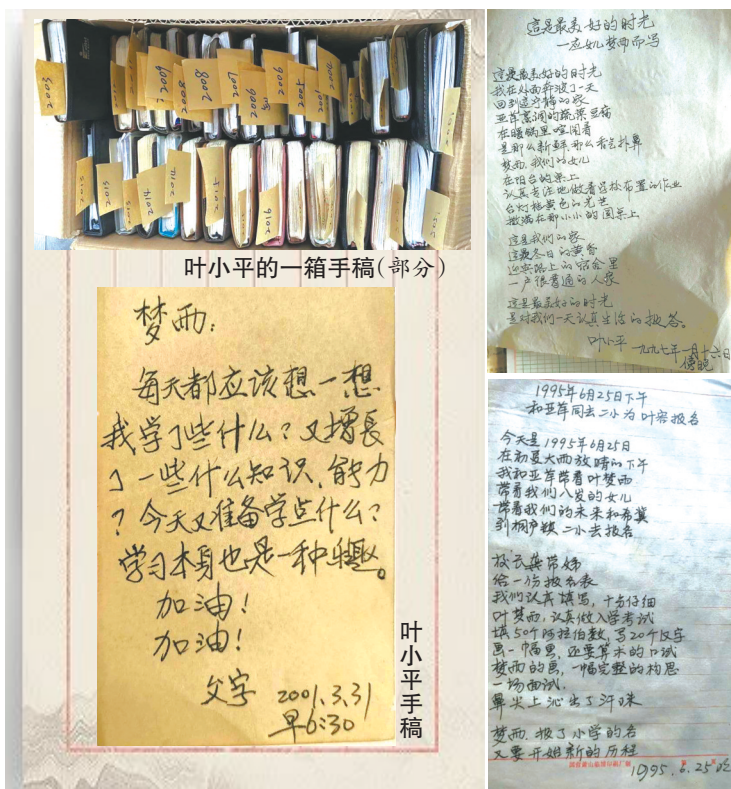 叶小平的一箱手稿(部分)
梦西:
每天都应该想一想
我学了些什么?又增长
了一些什么知识、能力
?今天又准备学点什么?
学习本身也是一种乐趣。
加油!
加油!
父字 2001.3.31
早6:30
叶小平手稿
这是最美好的时光
—为女儿梦西而写
这是最美好的时光
我在外面奔波了一天
回到这宁静的家
亚萍烹调的蔬菜豆腐
在暖锅里喧闹着
是那么新鲜,那么香气扑鼻
梦西,我们的女儿
在阳台的桌上
认真专注地做着学校布置的作业
台灯桔黄色的光芒
撒满在那小小的圆桌上
这是我们的家
这是冬日的黄昏
迎宾路上的宿舍里
一户很普通的人家
这是最美好的时光
是对我们一天认真生活的报答。
叶小平 一九九七年一月十六日
傍晚
1995年6月25日下午
和亚萍同去二小为叶窕报名
今天是1995年6月25日
在初夏大雨放晴的下午
我和亚萍带着叶梦西
带着我们八岁的女儿
带着我们的未来和希冀
到桐庐镇二小去报名
校长龚带娣
给一份报名表
我们认真填写,十分仔细
叶梦西,认真做入学考试
填50个阿拉伯数,写20个汉字
画一幅画,还要算术的口试
梦西的画,一幅完整的构思
一场面试,
鼻尖上沁出了汗珠
梦西,报了小学的名
又要开始新的历程
1995.6.25晚